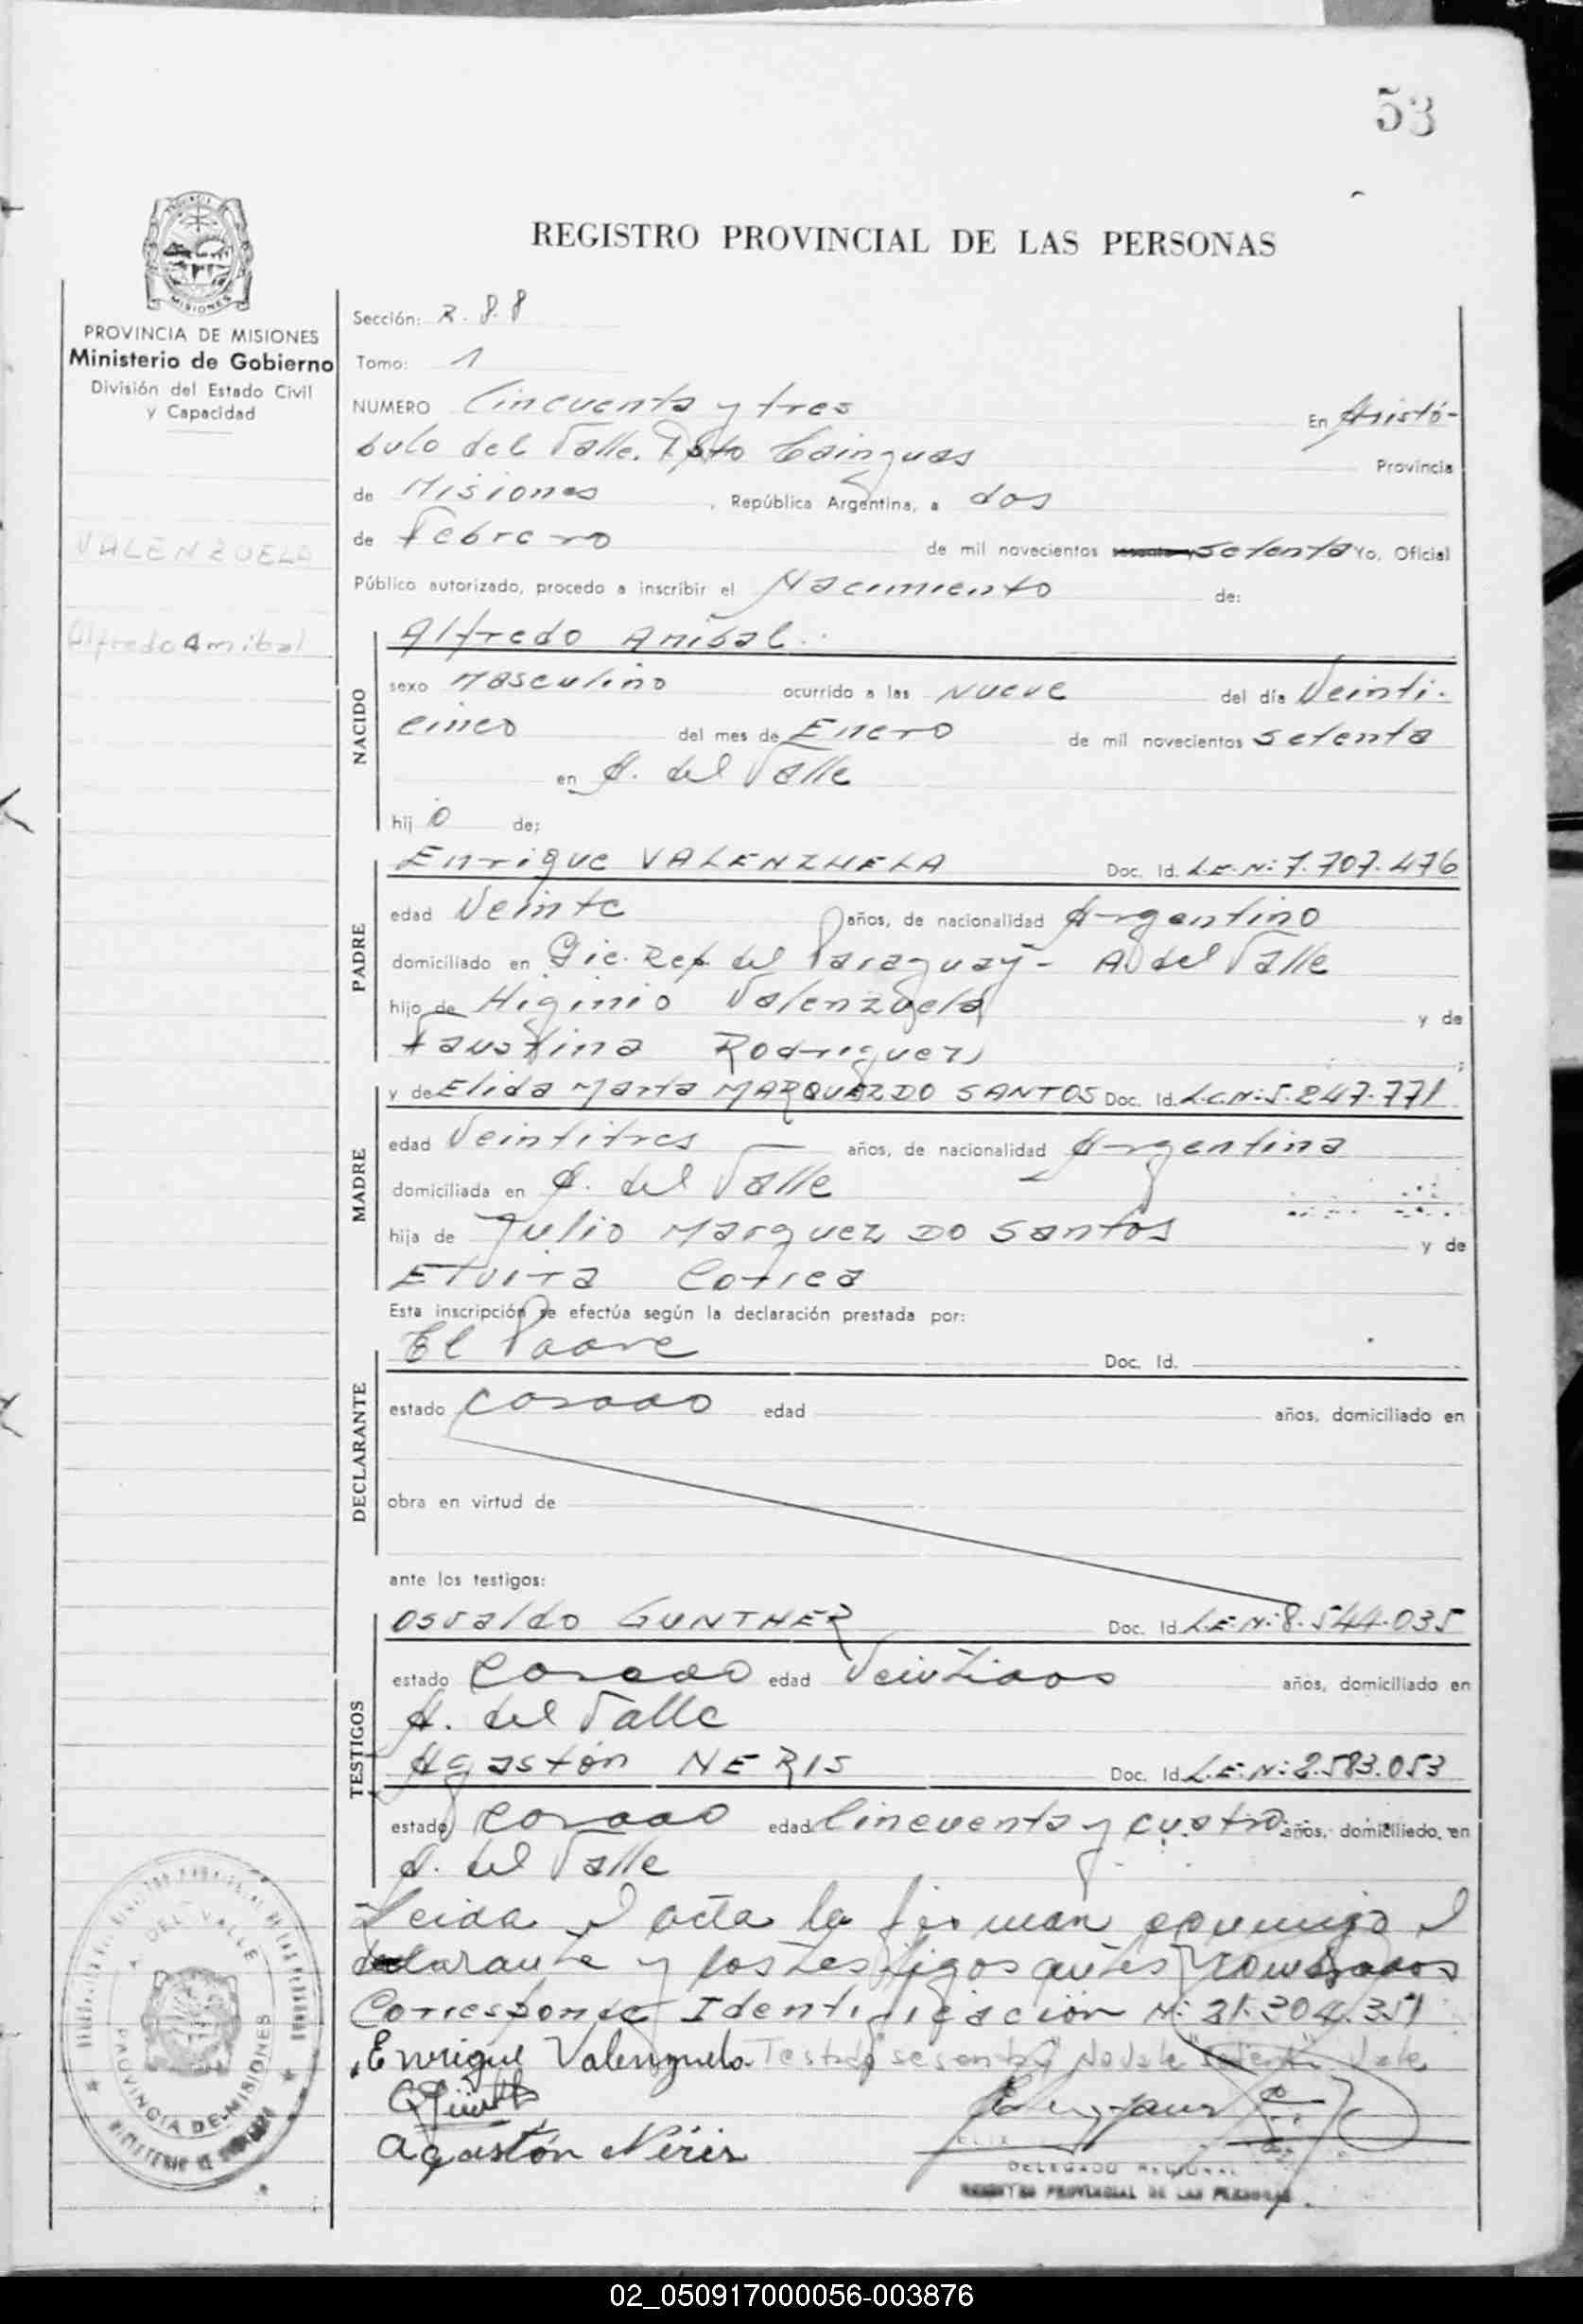 53
REGISTRO PROVINCIAL DE LAS PERSONAS
MISIONES
PROVINCIA DE MISIONES
Ministerio de Gobierno
División del Estado Civil
y Capacidad
VALENZUELA
Alfredo Anibal
Sección: R. 88
Tomo: 1
NUMERO Cincuenta y tres En Aristó-
bulo del Valle. Dpto Cainguas Provincia
de Misiones, República Argentina, a dos
de Febrero de mil novecientos sesenta y setenta Yo, Oficial
Público autorizado, procedo a inscribir el Nacimiento de:
NACIDO
Alfredo Aníbal.
sexo Masculino ocurrido a las Nueve del día Veinti-
cinco del mes de Enero de mil novecientos setenta
en A. del Valle
hijo de:
PADRE
Enrique VALENZUELA Doc. Id. L.E.N: 7.707.476
edad Veinte años, de nacionalidad Argentino
domiciliado en Pic. Rep. del Paraguay - A. del Valle
hijo de Higinio Valenzuela y de
Faustina Rodriguez
MADRE
y de Elida Marta MARQUEZ DO SANTOS Doc. Id. L.C.N: 5.247.771
edad Veintitres años, de nacionalidad Argentina
domiciliada en A. del Valle
hija de Julio Marquez DO Santos y de
Elvira Correa
Esta inscripción se efectúa según la declaración prestada por:
DECLARANTE
El Padre Doc. Id.
estado casado edad años, domiciliado en
obra en virtud de
ante los testigos:
TESTIGOS
Osvaldo GUNTHER Doc. Id. L.E.N: 8.544.035
estado casado edad Veintidos años, domiciliado en
A. del Valle
Agastón NERIS Doc. Id. L.E.N: 2.583.053
estado casado edad Cincuenta y cuatro años, domiciliado, en
A. del Valle
Leida el acta la firman conmigo el
declarante y los testigos antes nombrados
Corresponde Identificación N: 21.304.351
Enrique Valenzuela Testado "sesenta y" No Vale "setenta" Vale
Agastón Néris
DELEGADO REGIONAL
REGISTRO PROVINCIAL DE LAS PERSONAS
A. DEL VALLE
PROVINCIA DE MISIONES
02_050917000056-003876